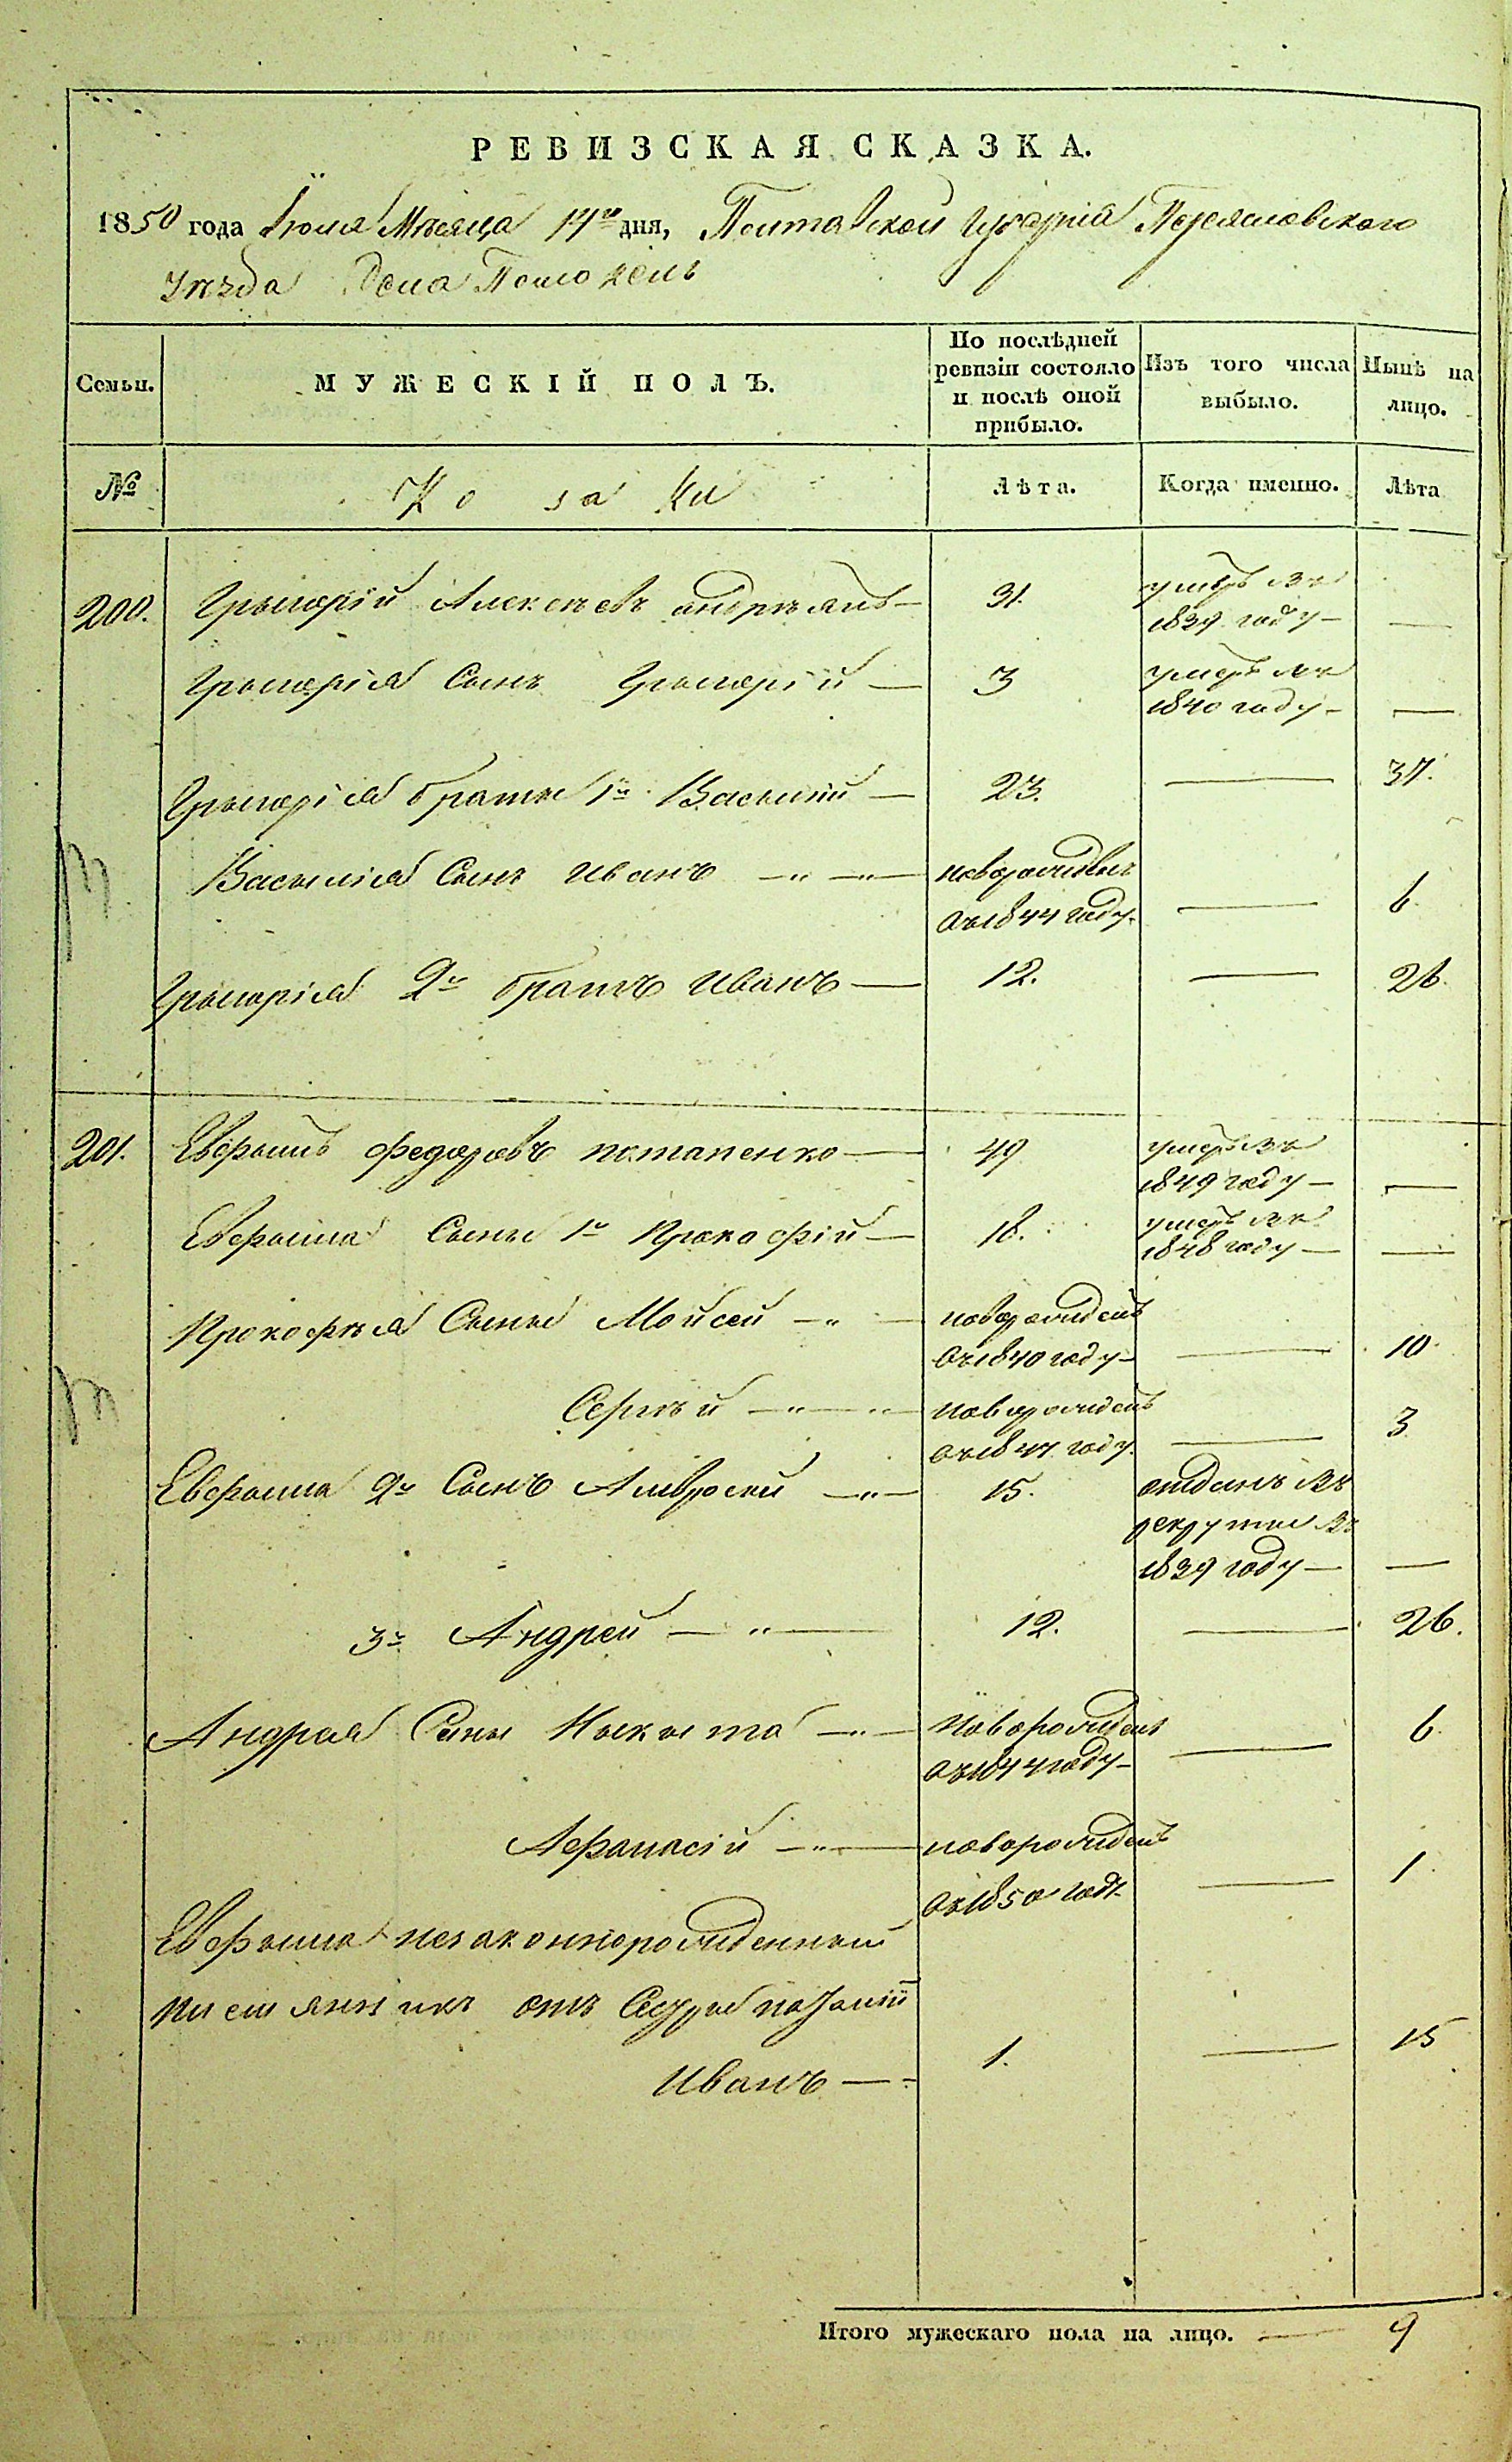 РЕВИЗСКАЯ СКАЗКА.
1850 года Июля Мѣсяца 14го дня, Полтавской Губерніи Переяславского
Уѣзда Села Помоклъ
Семьи. МУЖЕСКІЙ ПОЛЪ. По послѣдней ревизіи состояло и послѣ оной прибыло. Изъ того числа выбыло. Нынѣ на лицо.
№ Козаки Лѣта. Когда именно. Лѣта
200. Грыгорій Алексѣевъ 31. умеръ въ
1839 году —
Грыгорія Сынъ Грыгорій — 3 умеръ въ
1840 году —
Грыгорія братья 1й Василій — 23. — 37.
Василія Сынъ Иванъ — новорожденъ
1844 году. — 6.
Грыгорія 2й братъ Иванъ — 12. — 26.
201. Евфымъ Федоровъ Потапенко — 49 умеръ въ
1849 году —
Евфыма Сыны 1й Прокофій — 18. умеръ въ
1848 году —
Прокофія Сыны Мойсей — новорожденъ
1840 году — 10.
Сергѣй — новорожденъ
1847 году. — 3
Евфыма 2й Сынъ Амвросий — 15. отданъ въ
рекруты въ
1839 году —
3й Андрей — 12. — 26.
Андрея Сыны Никита — новорожденъ
1844 году — 6.
Афанасій — новорожденъ
1850 году. — 1.
Евфыма незаконнорожденный
племянникъ отъ Сестры
Иванъ — 1. — 15
Итого мужескаго пола на лицо. — 9